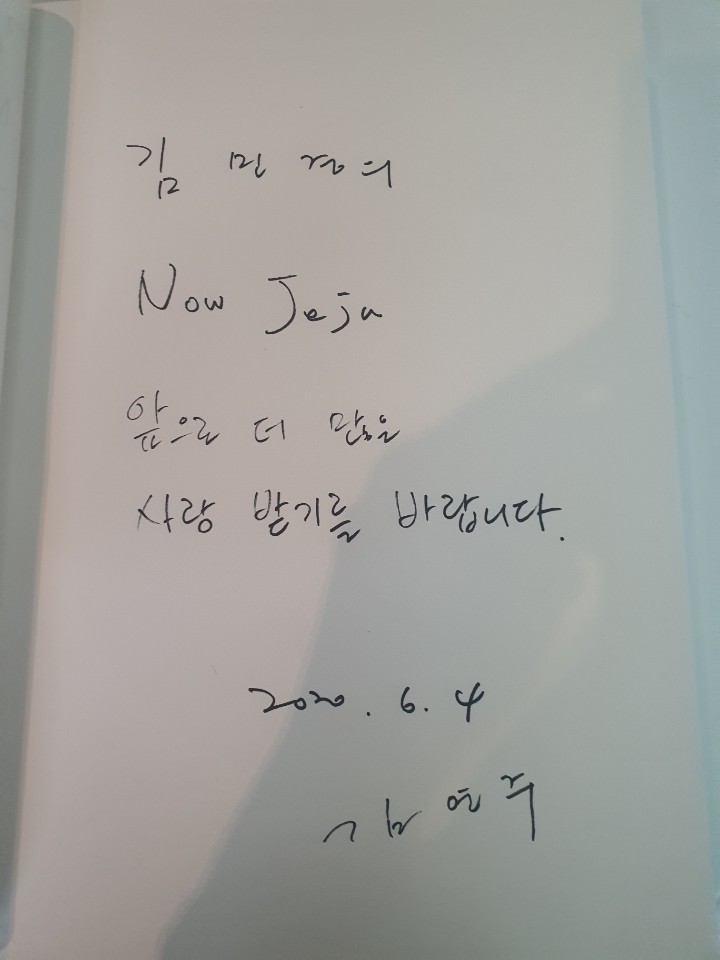 김 민 정의
Now Jeju
앞으로 더 많은
사랑 받기를 바랍니다.
2020. 6. 4
김 연 주